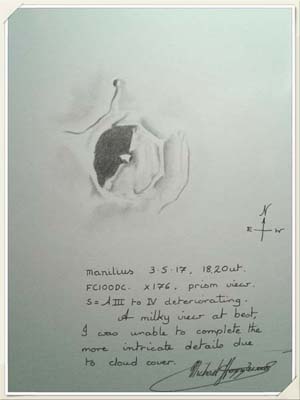 N
E W
Manilius 3.5.17, 18.20ut.
FC100DC. x176, prism view.
S=AIII to IV deteriorating.
A milky view at best,
I was unable to complete the
more intricate details due
to cloud cover.
Michael